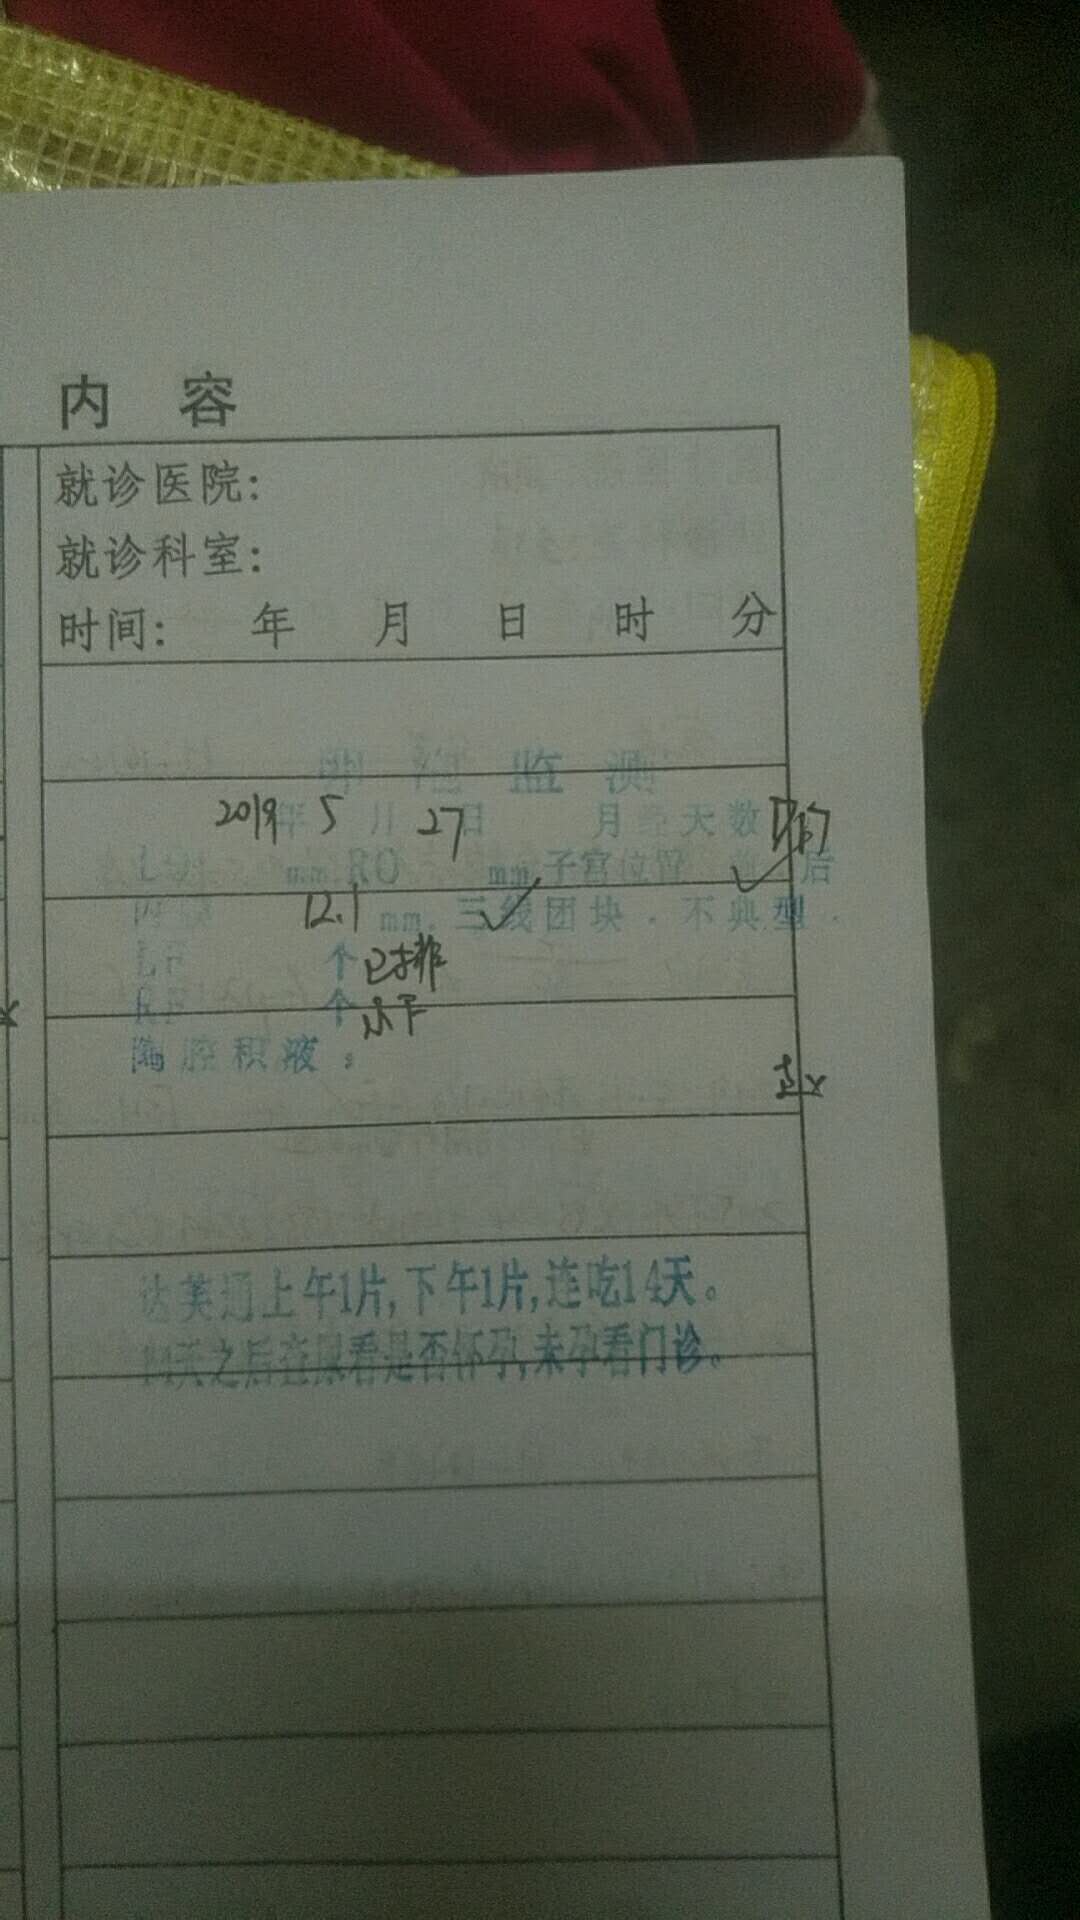 内 容
就诊医院:
就诊科室:
时间: 年 月 日 时 分
卵 泡 监 测
2019年 5 月 27日 月经天数
mm.RO mm.子宫位置 后
内膜 12.1 mm.三线团块.不典型.
LF 个 已排
RF 个 小下
陶腔积液:
达芙通上午1片,下午1片,连吃14天。
14天之后查尿看是否怀孕,未孕看门诊。